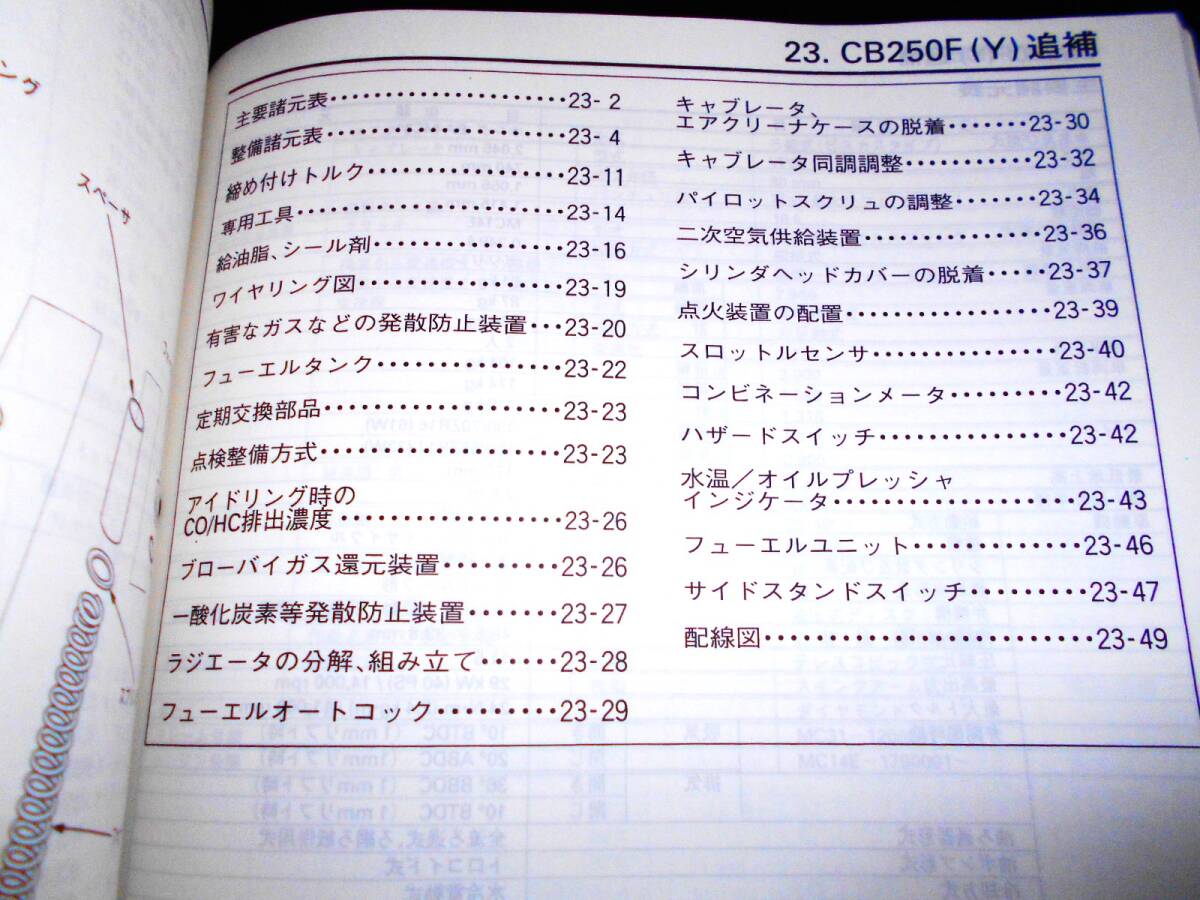 ング
スペーサ
23. CB250F (Y) 追補
主要諸元表························23- 2
整備諸元表························23- 4
締め付けトルク····················23-11
専用工具···························23-14
給油脂、シール剤···················23-16
ワイヤリング図····················23-19
有害なガスなどの発散防止装置···23-20
フューエルタンク··················23-22
定期交換部品······················23-23
点検整備方式······················23-23
アイドリング時の
CO/HC排出濃度·····················23-26
ブローバイガス還元装置·········23-26
一酸化炭素等発散防止装置·······23-27
ラジエータの分解、組み立て······23-28
フューエルオートコック··········23-29
キャブレータ、
エアクリーナケースの脱着·······23-30
キャブレータ同調調整···········23-32
パイロットスクリュの調整·······23-34
二次空気供給装置···············23-36
シリンダヘッドカバーの脱着·····23-37
点火装置の配置··················23-39
スロットルセンサ···············23-40
コンビネーションメータ·········23-42
ハザードスイッチ···············23-42
水温／オイルプレッシャ
インジケータ·····················23-43
フューエルユニット·············23-46
サイドスタンドスイッチ·········23-47
配線図···························23-49